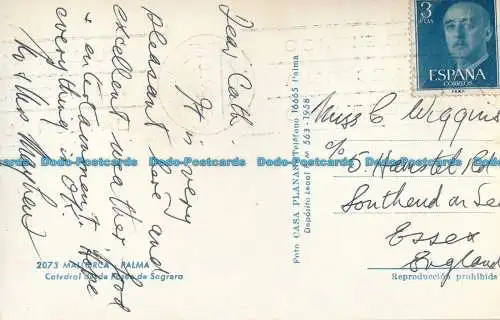 Dear Cath.
It is very
pleasant here and
excellent weather food
& entertainment. Hope
everything is OK.
2073 MALLORCA - PALMA
Catedral desde Paseo de Sagrera
Foto CASA PLANAS Teléfono 16665 Palma
Depósito Legal 563-1958
3
PTAS
ESPAÑA
CORREOS
Miss C Wiggins
c/o
5 Rd
Southend on Sea
Essex
England
Reproducción prohibida
Dodo-Postcards.com Dodo-Postcards.com Dodo-Postcards.com Dodo-Postcards.com